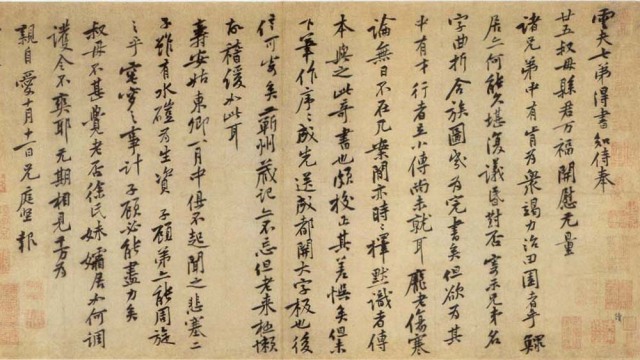 雲夫七弟得書知侍奉
廿五叔母縣君万福開慰无量
諸兄弟中有肯為衆竭力治田園者乎鰥
居亦何能久堪復議昏對否寄示兄弟名
字曲折合族圖家為完書矣但欲為其
中有才行者立小傳尚未就耳龐老傷寒
論無日不在几案間亦時〻擇默識者傳
本與之此奇書也頗校正其差悞矣但未
下筆作序〻成先送成都開大字板也後
信可寄矣王蘄州歲記亦不忘但老來極懶
故稽緩如此耳
壽安姑東卿一月中俱不起聞之悲塞二
子雖有水磑為生資子顧弟亦能周旋
之乎窀穸之事計子顧必能盡力矣
叔母不甚覺老否徐氏妹孀居如何調
護令不爽耶无期相見千万為
親自愛十月十一日兄庭堅報